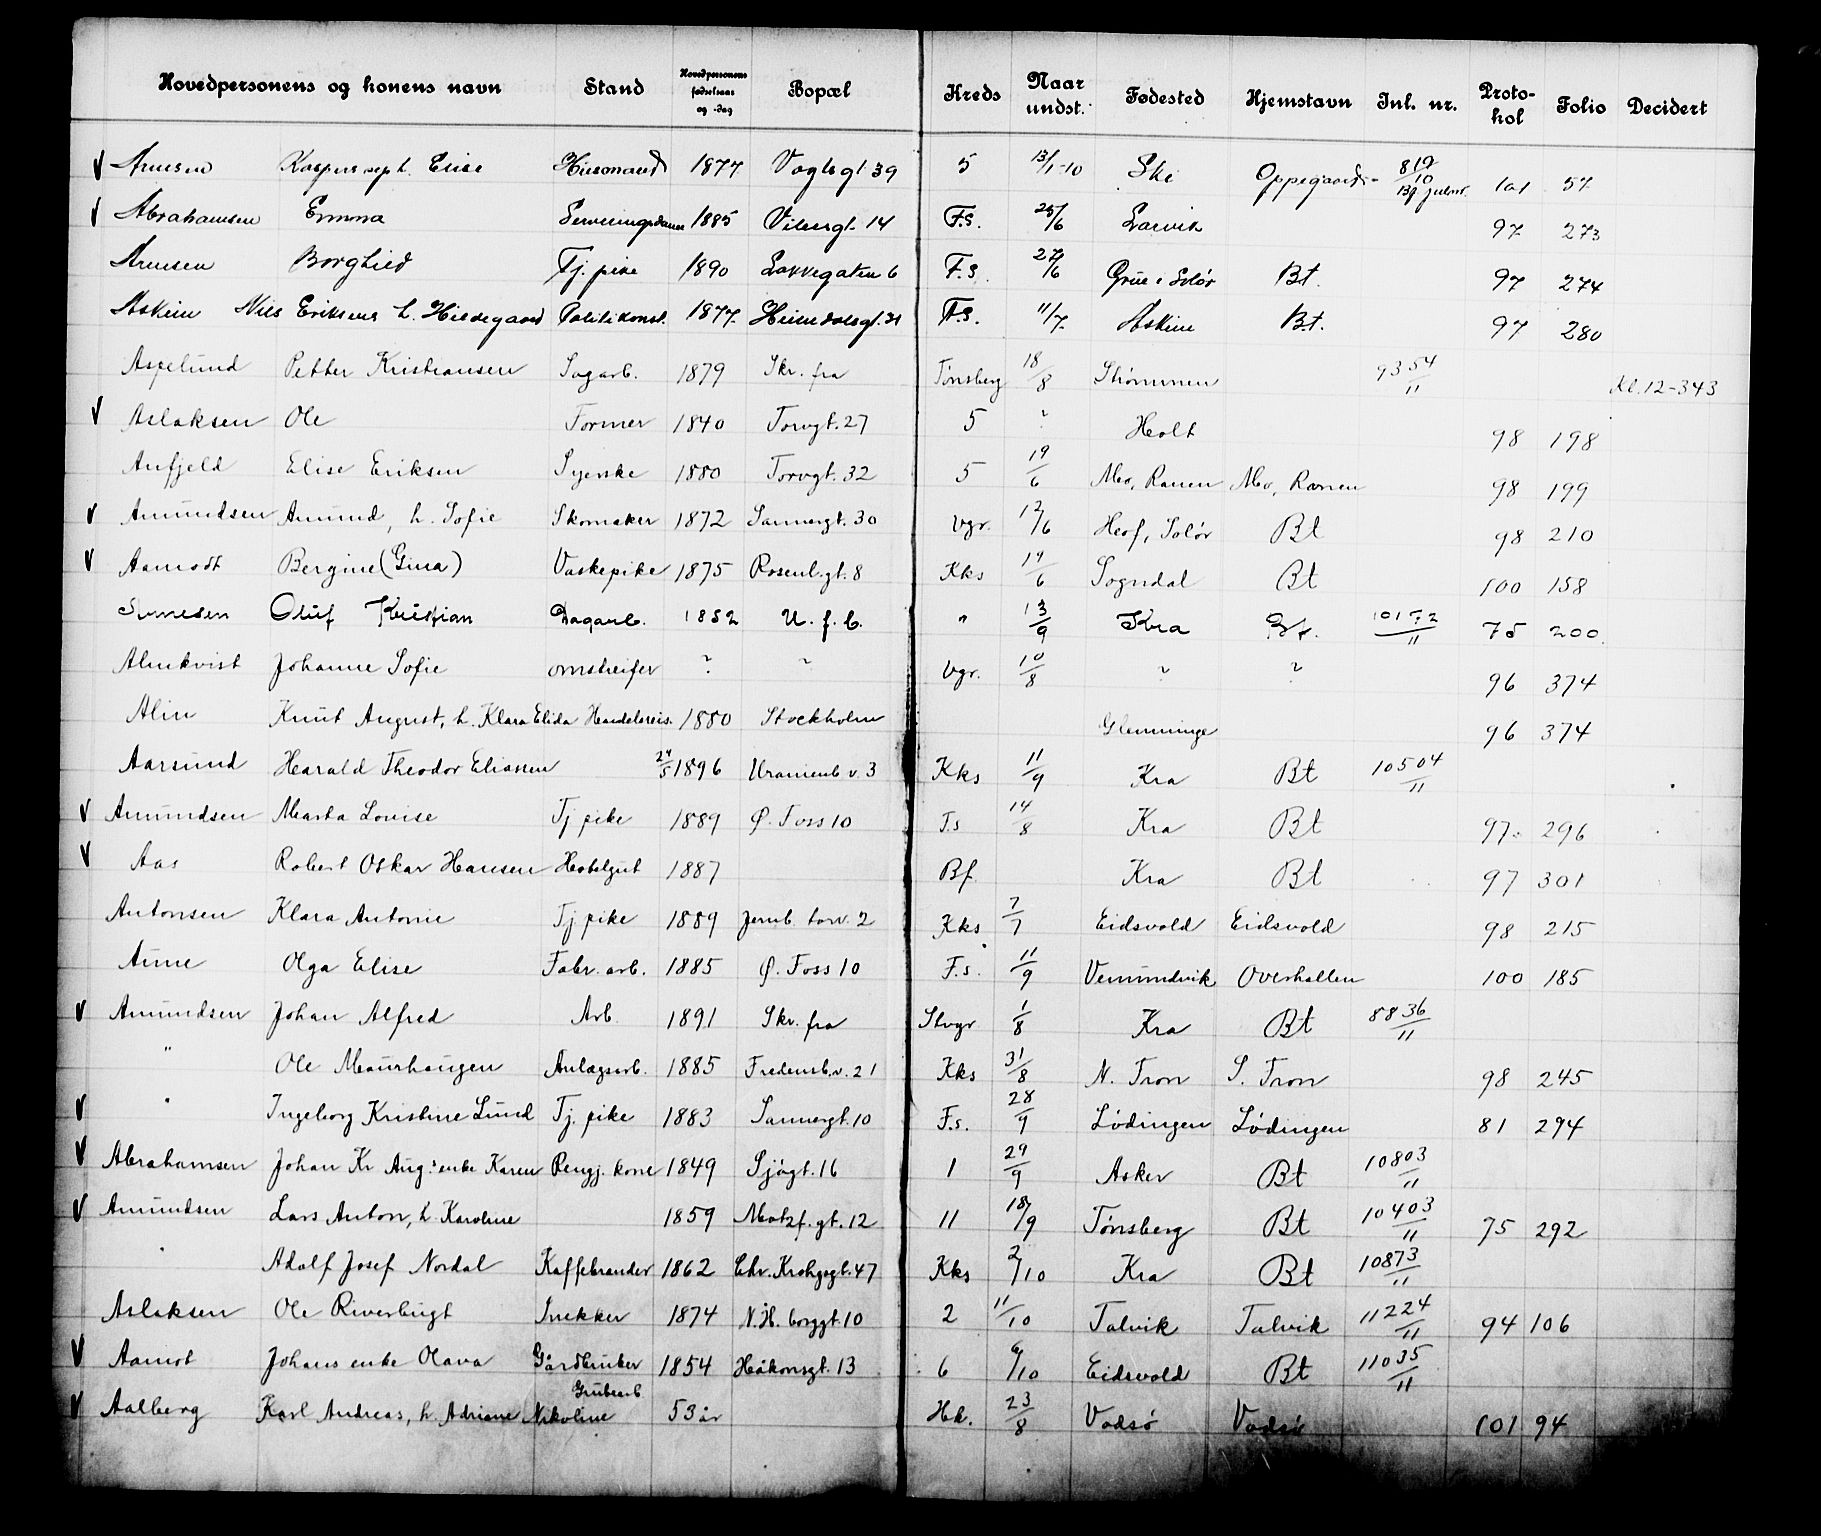 Hovedpersonens og konens navn | Stand | Hovedpersonens fødselsaar og -dag | Bopæl | Kreds | Naar undst. | Fødested | Hjemstavn | Inl. nr. | Proto-kol | Folio | Decidert
V Arnesen h. Elise 1877 Vogtsgt 39 5 13/1-10 Ski Oppegaard 812/10 101 57
V Abrahamsen Emma Serveringsdame 1885 Vibesgt. 14 F.S. 25/6 Larvik 97 273
Arnesen Borghild Tj. pike 1890 Lakkegaten 6 F.S. 27/6 Grue i Solør Bt. 97 274
Askim Nils Eriksens h. Hildegaard Politikonst. 1877 Heimdalsgt. 31 F.S. 11/7 Askim Bt. 97 280
Aspelund Petter Kristiansen Sagarb. 1879 Skr. fra Tønsberg 18/8 Strømmen 9354/11 Kl. 12-343
V Aslaksen Ole Former 1840 Torvgt. 27 5 ? Holt 98 198
Aufjeld Elise Eriksen Syerske 1880 Torvgt. 32 5 19/6 Mo, Ranen Mo, Ranen 98 199
V Amundsen Amund, h. Sofie Skomaker 1872 Sannergt. 30 Vgr. 12/6 Hof, Solør Bt 98 210
V Aamodt Bergine (Gina) Vaskepike 1875 Rosenb.gt. 8 Kks 14/6 Sogndal Bt 100 158
Oluf Kristian Dagarb. 1852 U. f. b. " 13/9 Kra Bt. 10172/11 75 200
Almkvist Johanne Sofie omstreifer ? ? Vgr. 10/8 ? ? 96 374
Alin Knut August, h. Klara Elida Handelsreis. 1880 Stockholm Glemminge 96 374
Aarsund Harald Theodor Eliassen 24/5 1896 Uranienb v. 3 Kks 11/9 Kra Bt 10504/11
V Amundsen Marta Lovise Tj pike 1889 Ø. Foss 10 F.s 14/8 Kra Bt 97 296
V Aas Robert Oskar Hansen Hotelgut 1887 Bf. Kra Bt 97 301
Antonsen Klara Antonie Tj pike 1889 Jernb. torv. 2 Kks 7/7 Eidsvold Eidsvold 98 215
Aune Olga Elise Fabr. arb. 1885 Ø. Foss 10 F.s. 11/9 Vemundvik Overhallen 100 185
V Amundsen Johan Alfred Arb. 1891 Skr. fra Stvgr 1/8 Kra Bt 8836/11
" Ole Maurhaugen Anlægsarb. 1885 Fredensb.v. 21 Kks 31/8 N. Tron S. Tron 98 245
V " Ingeborg Kristine Lund Tj. pike 1883 Sannergt. 10 F.s. 28/9 Lødingen Lødingen 81 294
V Abrahamsen Johan Kr Aug: enke Karen Rengj. kone 1849 Sjøgt. 16 1 29/9 Asker Bt 10803/11
V Amundsen Lars Anton, h. Karoline 1859 Motzf. gt. 12 11 18/9 Tønsberg Bt 10403/11 75 292
" Adolf Josef Nordal Kaffebrænder 1862 Chr. Krohgsgt. 47 Kks 2/10 Kra Bt 10873/11
Aslaksen Ole Riverbugt Snekker 1874 N. H. borggt. 10 2 11/10 Talvik Talvik 11224/11 94 106
V Aamot Johans enke Olava Gårdbruker 1854 Håkonsgt. 13 6 6/10 Eidsvold Bt 11035/11
V Aalberg Karl Andreas, h. Adriane Nikoline Grubearb 53 år Hk. 23/8 Vadsø Vadsø 101 94